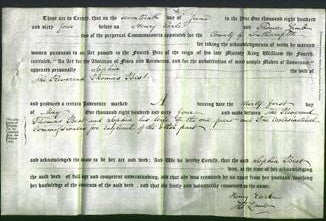 These are to Certify, that on the seventeenth day of June in the Year One thousand eight hundred
and sixty four before us Henry
two of the perpetual Commissioners appointed for the County of Southampton
for taking the acknowledgments of deeds by married
women pursuant to an Act passed in the Fourth Year of the reign of his late Majesty King William the Fourth,
intituled, "An Act for the Abolition of Fines and Recoveries, and for the substitution of more simple Modes of Assurance"
appeared personally the wife of
The Reverend Thomas Best
and produced a certain Indenture marked A bearing date the thirty first
day of May One thousand eight hundred and sixty four and made between The Reverend
Thomas Best and his wife of the one part and The Ecclesiastical
Commissioners for England of the other part
and acknowledged the same to be her act and deed; And We do hereby Certify, that the said Best
was, at the time of her acknowledging the said deed, of full age and competent understanding, and that she was examined by us apart from her husband, touching
her knowledge of the contents of the said deed, and that she freely and voluntarily consented to the same.
Henry